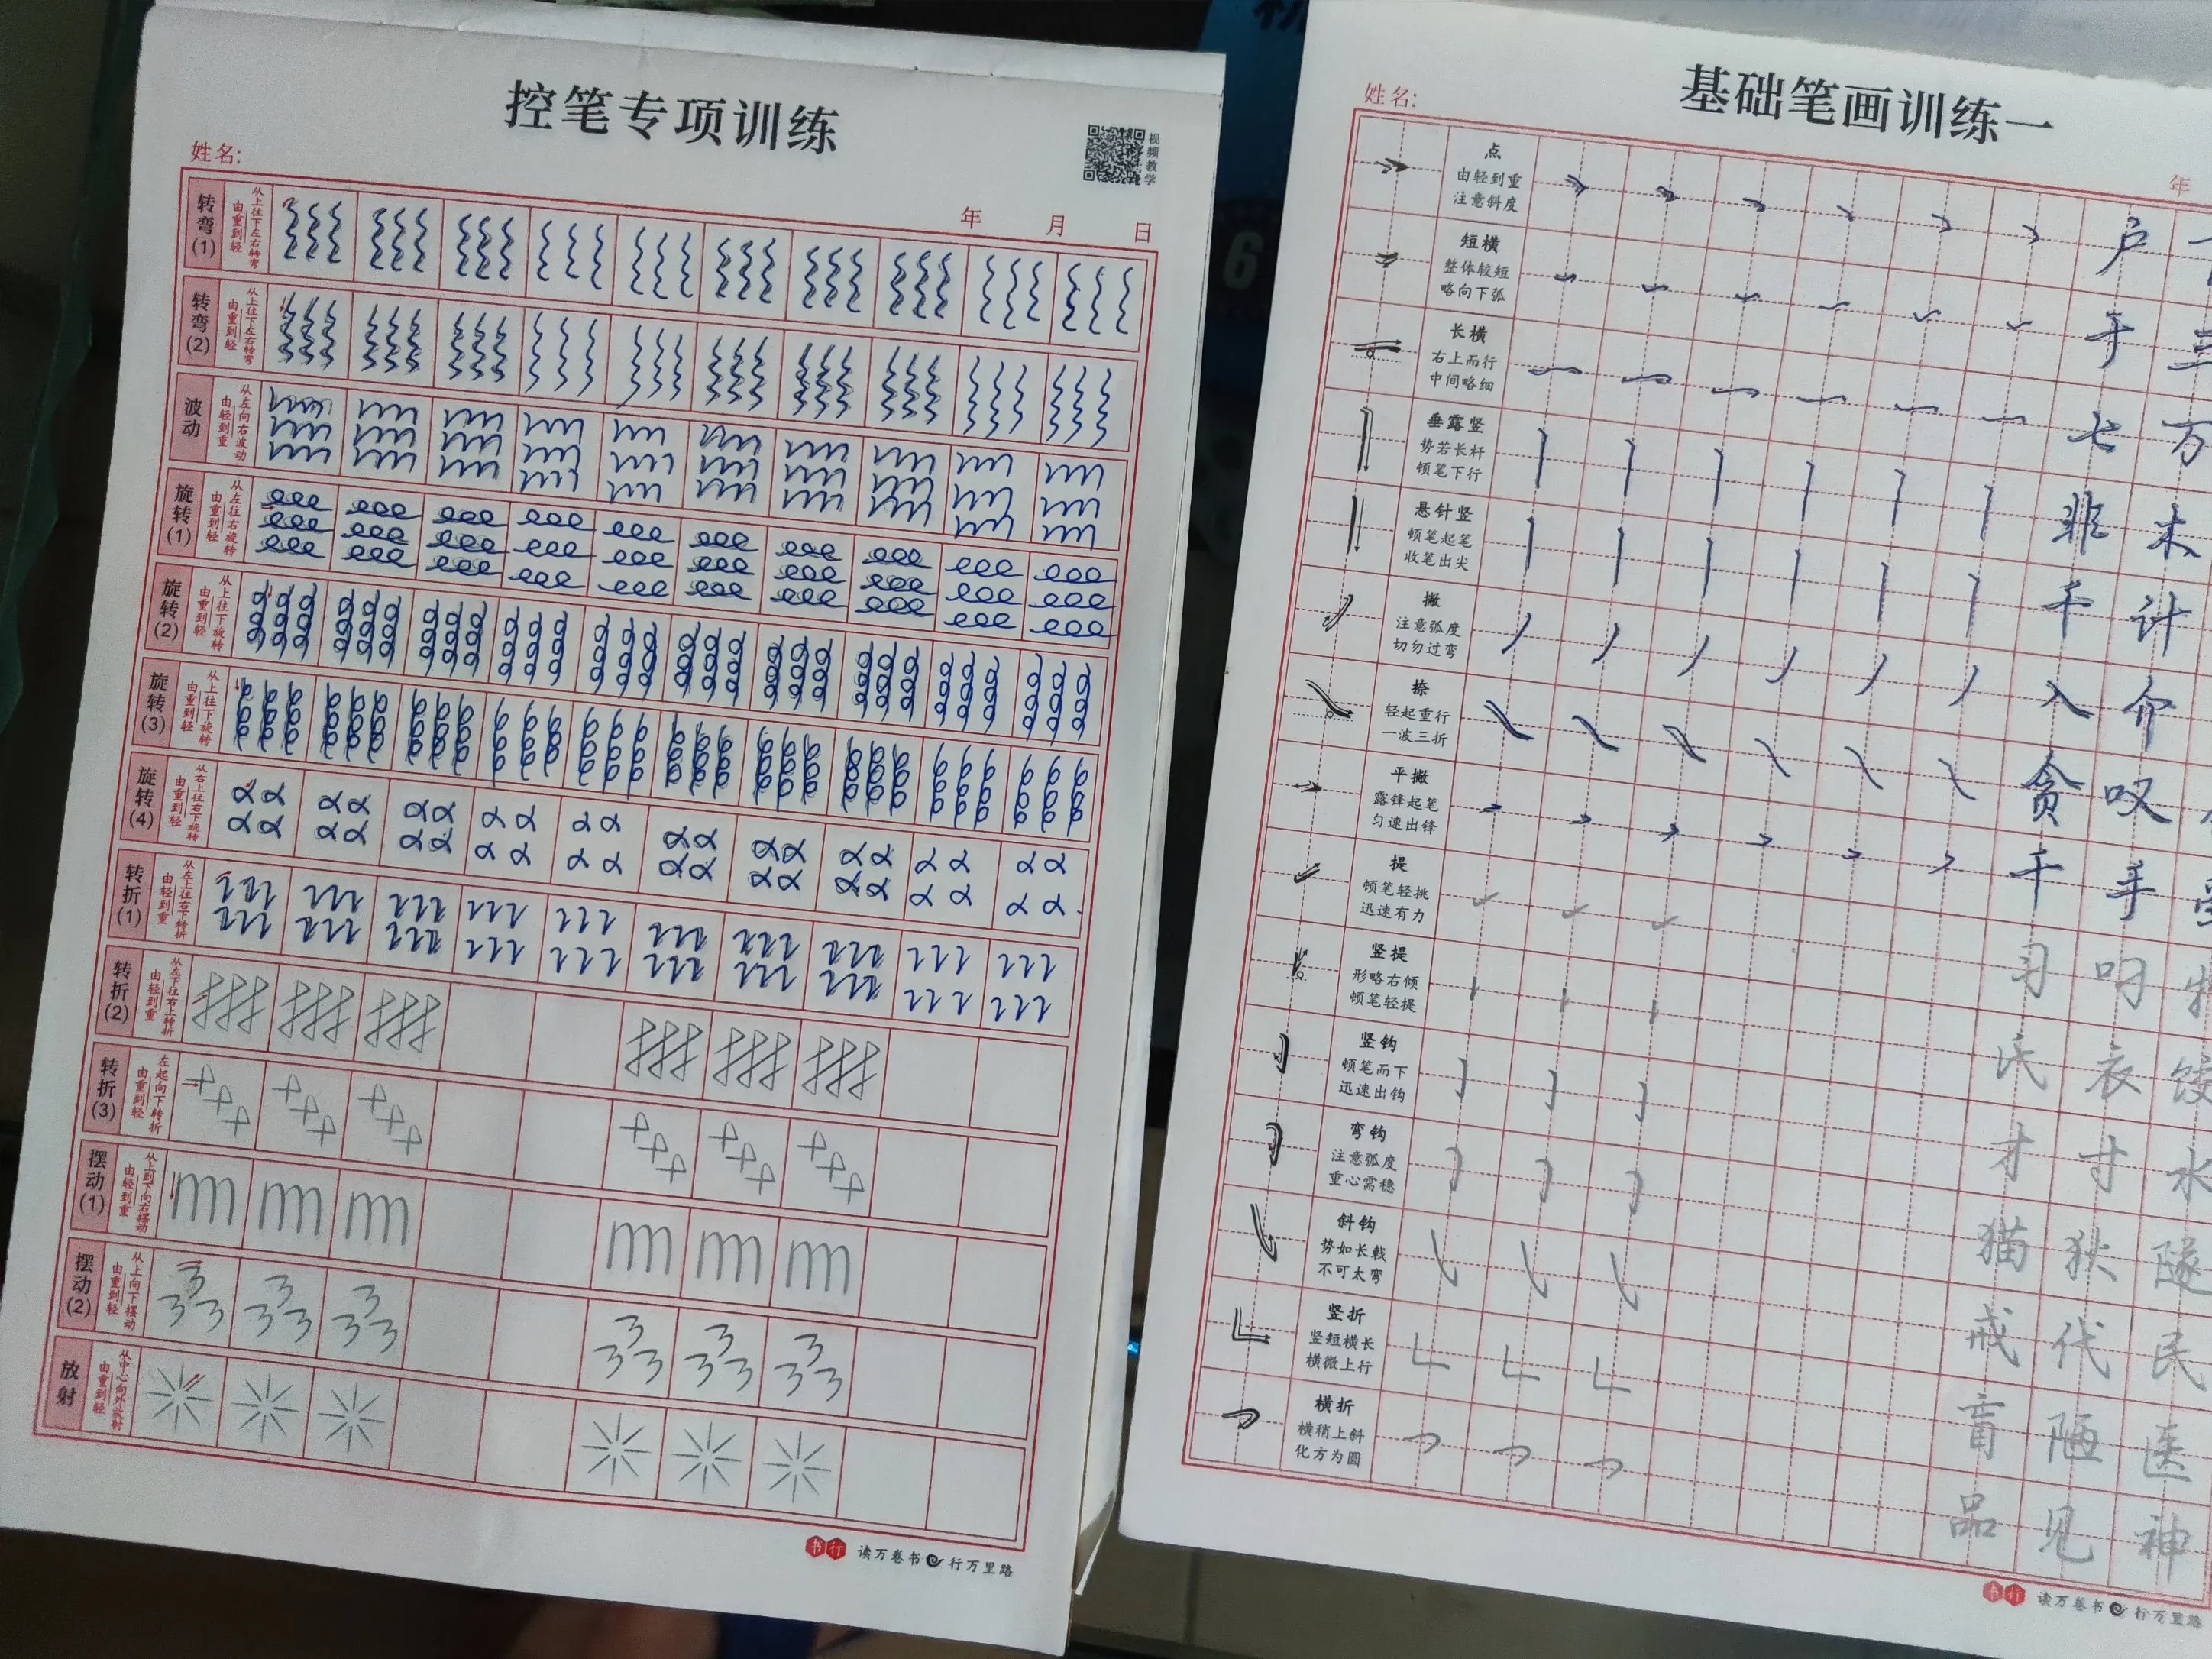 控笔专项训练
视频教学
姓名:
年 月 日
转弯(1) 从上往下左右转弯 由重到轻
转弯(2) 从上往下左右转弯 由重到轻
波动 从左向右波动 由轻到重
旋转(1) 从左往右旋转 由重到轻
旋转(2) 从上往下旋转 由重到轻
旋转(3) 从上往下旋转 由重到轻
旋转(4) 从右上往右下旋转 由重到轻
转折(1) 从左上往右下转折 由轻到重
转折(2) 从左下往右上转折 由轻到重
转折(3) 左起向下转折 由重到轻
摆动(1) 从上到下向右摆动 由轻到重
摆动(2) 从上向下摆动 由重到轻
放射 从中心向外放射 由重到轻
书行 读万卷书 行万里路
6
基础笔画训练一
姓名:
年
点 由轻到重 注意斜度 户
短横 整体较短 略向下弧 于 三
长横 右上而行 中间略细 七 万
垂露竖 势若长杆 顿笔下行 非 木
悬针竖 顿笔起笔 收笔出尖 千 计
撇 注意弧度 切勿过弯 入 介
捺 轻起重行 一波三折 贪 叹
平撇 露锋起笔 匀速出锋 千 手
提 顿笔轻挑 迅速有力 习 叼
竖提 形略右倾 顿笔轻提 民 衣
竖钩 顿笔而下 迅速出钩 才 寸 水
弯钩 注意弧度 重心需稳 猫 狄 隧
斜钩 势如长戟 不可太弯 戒 代 民
竖折 竖短横长 横微上行 盲 陋 医
横折 横稍上斜 化方为圆 品 见 神
书行 读万卷书 行万里路